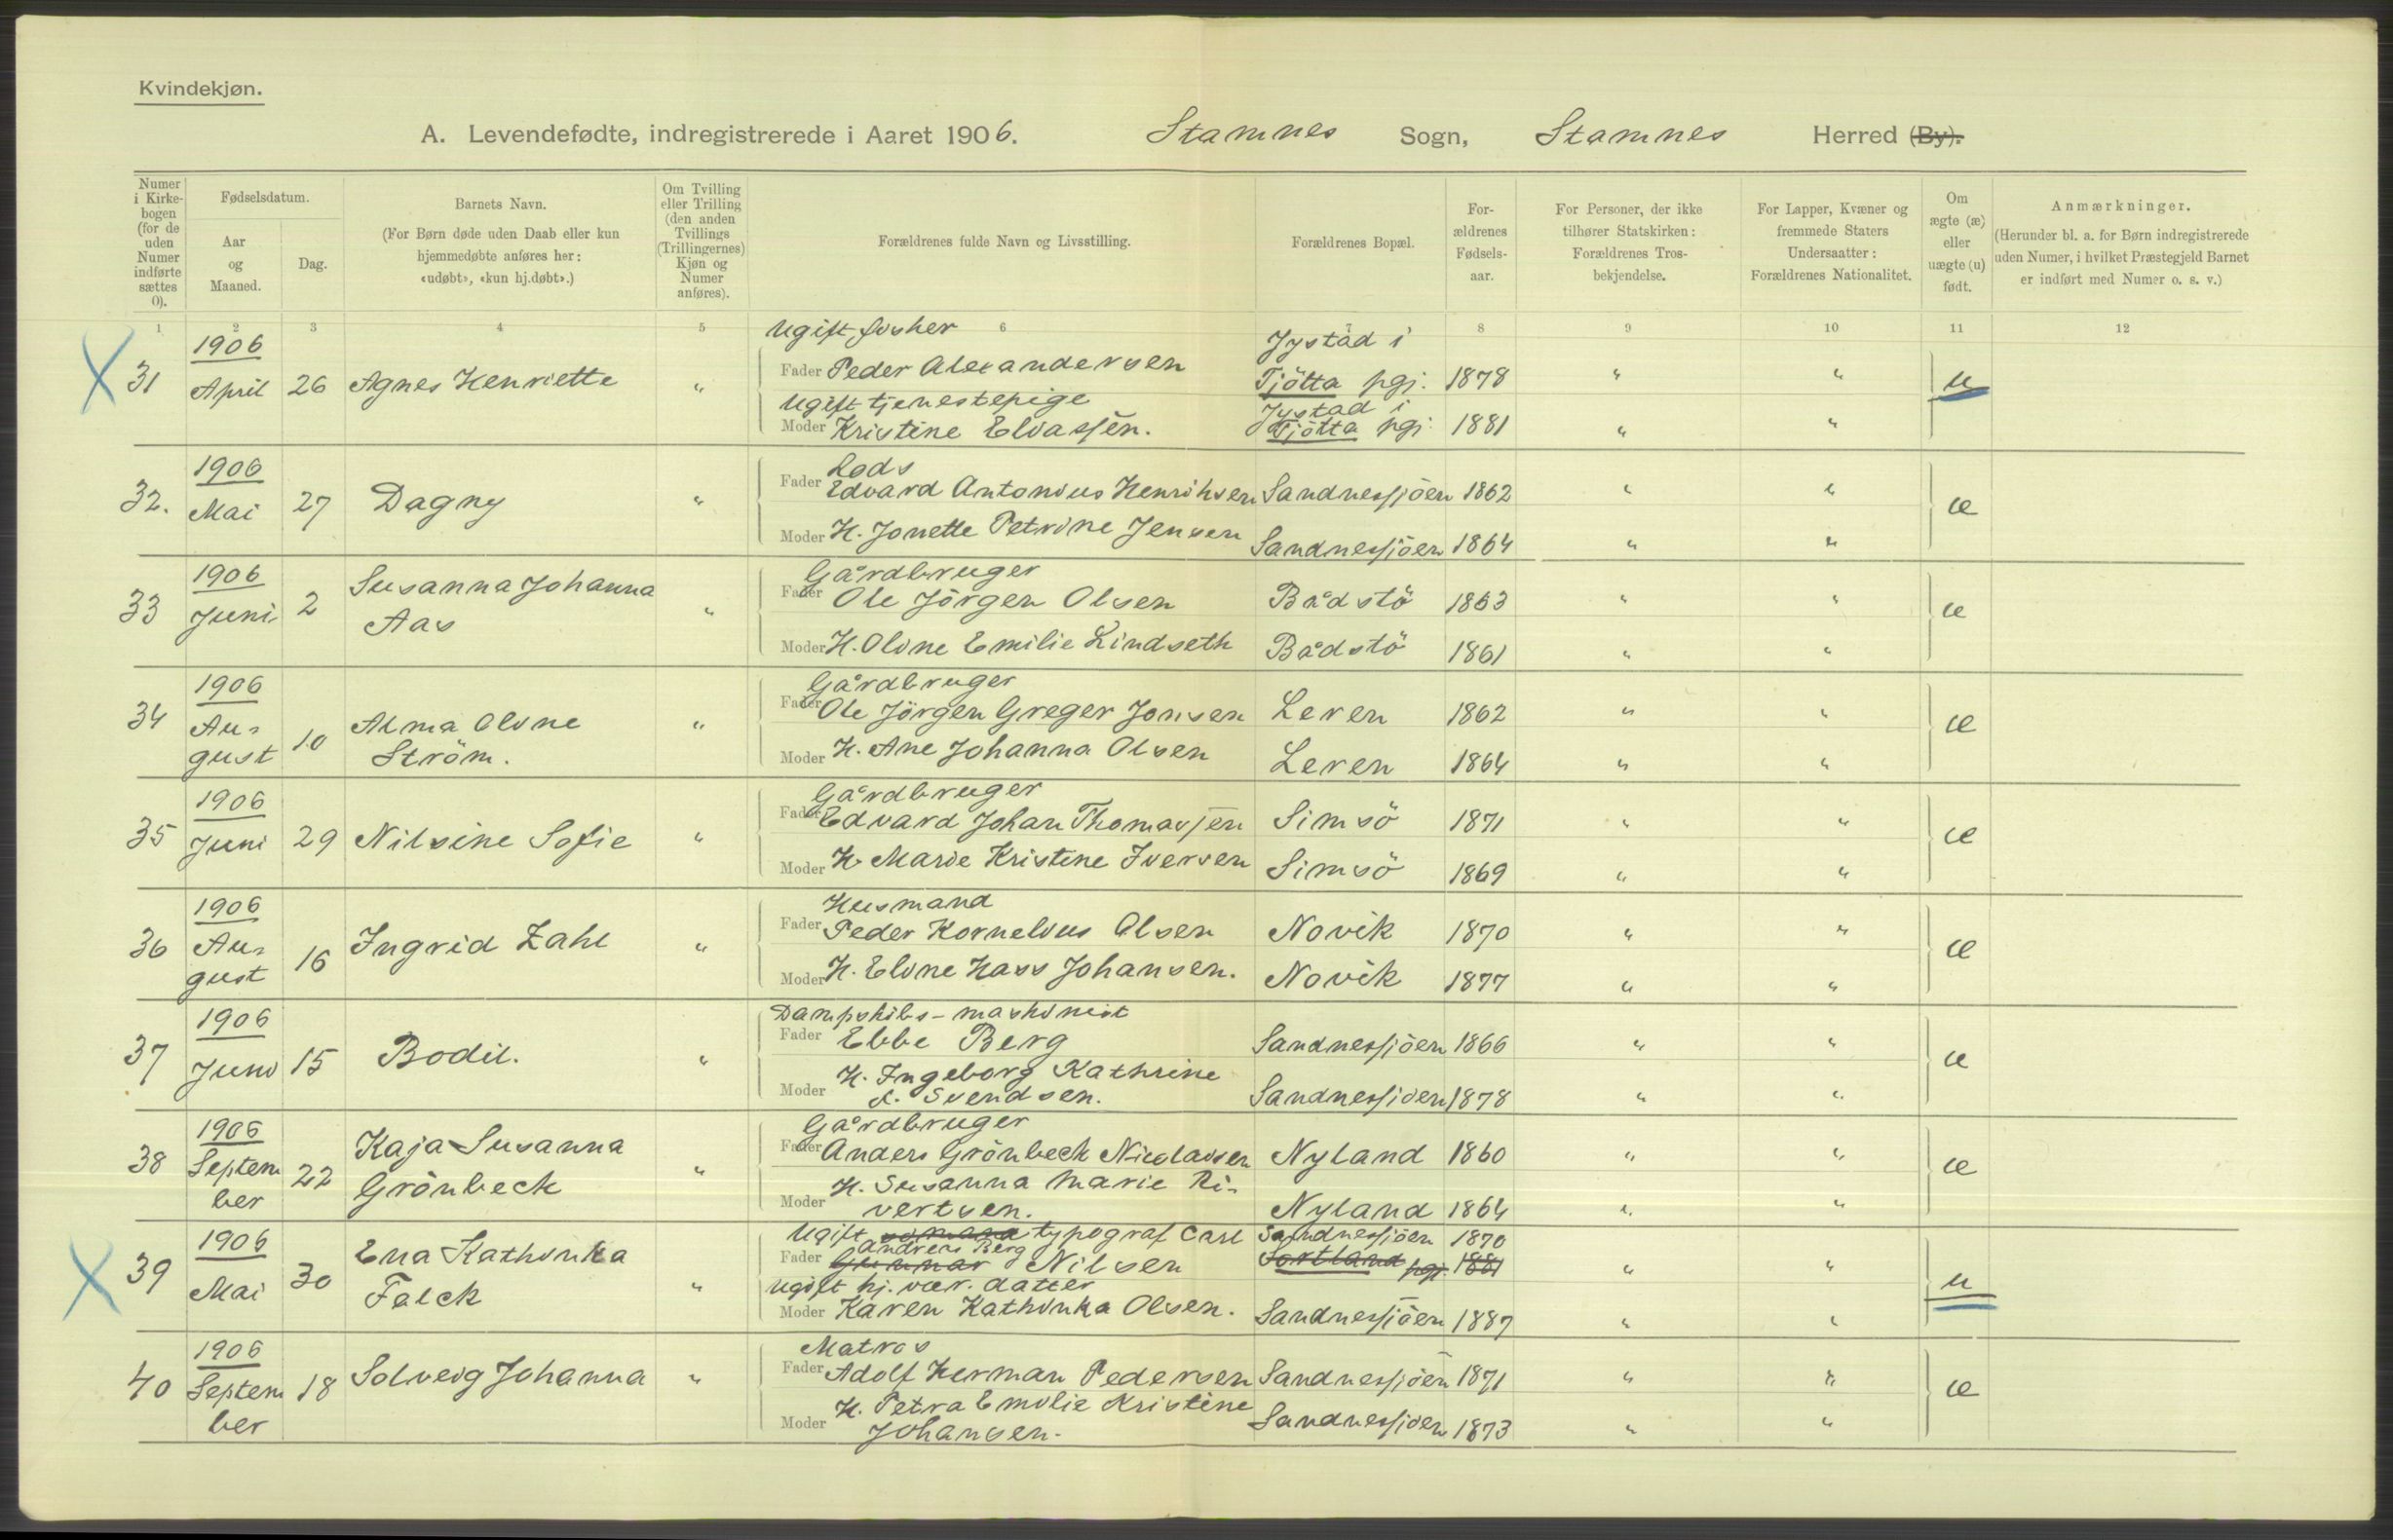 Kvindekjøn.
A. Levendefødte, indregistrerede i Aaret 1906. Stamnes Sogn, Stamnes Herred (By).
Numer i Kirke-bogen (for de uden Numer indførte sættes 0).
Fødselsdatum.
Aar og Maaned.
Dag.
Barnets Navn.
(For Børn døde uden Daab eller kun hjemmedøbte anføres her: «udøbt», «kun hj.døbt».)
Om Tvilling eller Trilling (den anden Tvillings (Trillingernes) Kjøn og Numer anføres).
Forældrenes fulde Navn og Livsstilling.
Forældrenes Bopæl.
For-ældrenes Fødsels-aar.
For Personer, der ikke tilhører Statskirken: Forældrenes Tros-bekjendelse.
For Lapper, Kvæner og fremmede Staters Undersaatter: Forældrenes Nationalitet.
Om ægte (æ) eller uægte (u) født.
Anmærkninger.
(Herunder bl. a. for Børn indregistrerede uden Numer, i hvilket Præstegjeld Barnet er indført med Numer o. s. v.)
1 2 3 4 5 6 7 8 9 10 11 12
31 1906 April 26 Agnes Henriette " u
Ugift fisker
Fader Peder Alexandersen Jystad i Tjötta pgj. 1878 " "
Ugift tjenestepige
Moder Kristine Eliassen. Jystad i Tjötta pgj. 1881 " "
32. 1906 Mai 27 Dagny " æ
Lods
Fader Edvard Antonius Henriksen Sandnessjöen 1862 " "
Moder H. Jonette Petrine Jensen Sandnessjöen 1864 " "
33 1906 Juni 2 Susanna Johanna Aas " æ
Gårdbruger
Fader Ole Jörgen Olsen Bådstö 1863 " "
Moder H. Oline Emilie Lindseth Bådstö 1861 " "
34 1906 August 10 Alma Oline Ström. " æ
Gårdbruger
Fader Ole Jörgen Greger Jonsen Leren 1862 " "
Moder H. Ane Johanna Olsen Leren 1864 " "
35 1906 Juni 29 Nilsine Sofie " æ
Gårdbruger
Fader Edvard Johan Thomassen Simsö 1871 " "
Moder H. Marie Kristine Iversen Simsö 1869 " "
36 1906 August 16 Ingrid Zahl " æ
Husmand
Fader Peder Kornelius Olsen Novik 1870 " "
Moder H. Eline Hass Johansen. Novik 1877 " "
37 1906 Juni 15 Bodil. " æ
Dampskibs-maskinist
Fader Ebbe Berg Sandnessjöen 1866 " "
Moder H. Ingeborg Kathrine Svendsen. Sandnessjöen 1878 " "
38 1906 September 22 Kaja Susanna Grönbeck " æ
Gårdbruger
Fader Anders Grönbeck Nicolaisen Nyland 1860 " "
Moder H. Susanna Marie Rivertsen. Nyland 1864 " "
39 1906 Mai 30 Ena Kathinka Falck " u
Ugift sömand typograf Carl Sandnessjöen 1870
Andreas Berg
Fader Gunnar Nilsen Sortland pgj. 1881 " "
Ugift hj. vær. datter
Moder Karen Kathinka Olsen. Sandnessjöen 1887 " "
40 1906 September 18 Solveig Johanna " æ
Matros
Fader Adolf Herman Pedersen Sandnessjöen 1871 " "
Moder H. Petra Emilie Kristine Johansen. Sandnessjöen 1873 " "